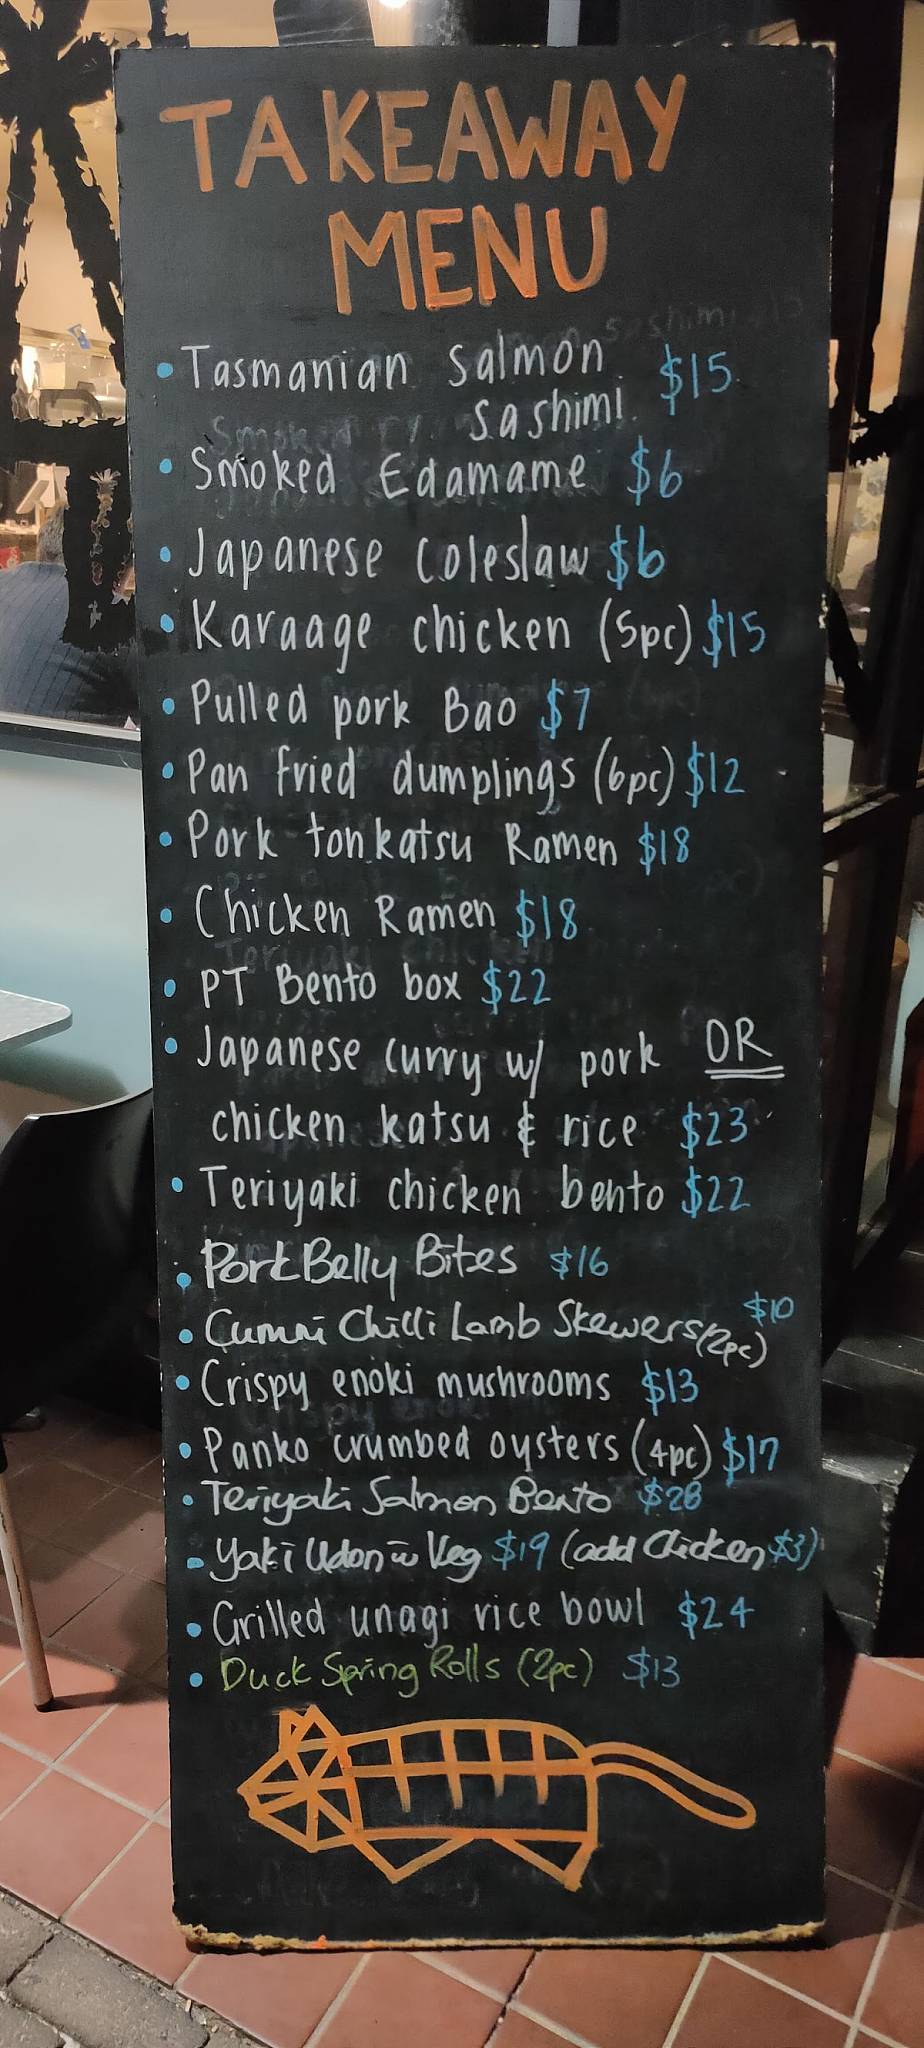 TAKEAWAY
MENU
• Tasmanian salmon $15
sashimi
• Smoked Edamame $6
• Japanese coleslaw $6
• Karaage chicken (5pc) $15
• Pulled pork Bao $7
• Pan fried dumplings (6pc) $12
• Pork tonkatsu Ramen $18
• Chicken Ramen $18
• PT Bento box $22
• Japanese curry w/ pork OR
chicken katsu & rice $23
• Teriyaki chicken bento $22
• Pork Belly Bites $16
• Cumni Chilli Lamb Skewers (2pc) $10
• Crispy enoki mushrooms $13
• Panko crumbed oysters (4pc) $17
• Teriyaki Salmon Bento $28
• Yaki Udon w Veg $19 (add Chicken $3)
• Grilled unagi rice bowl $24
• Duck Spring Rolls (2pc) $13